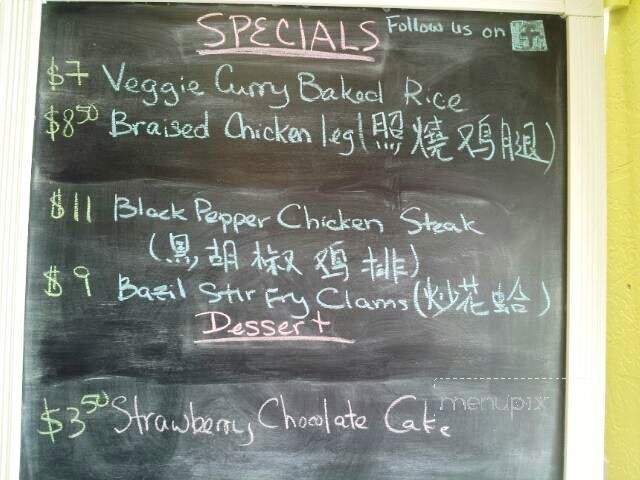 SPECIALS Follow us on
$7 Veggie Curry Baked Rice
$8.50 Braised Chicken leg (照燒鸡腿)
$11 Black Pepper Chicken Steak
(黒胡椒鸡排)
$9 Bazil Stir Fry Clams (炒花蛤)
Dessert
menupix
$3.50 Strawberry Chocolate Cake